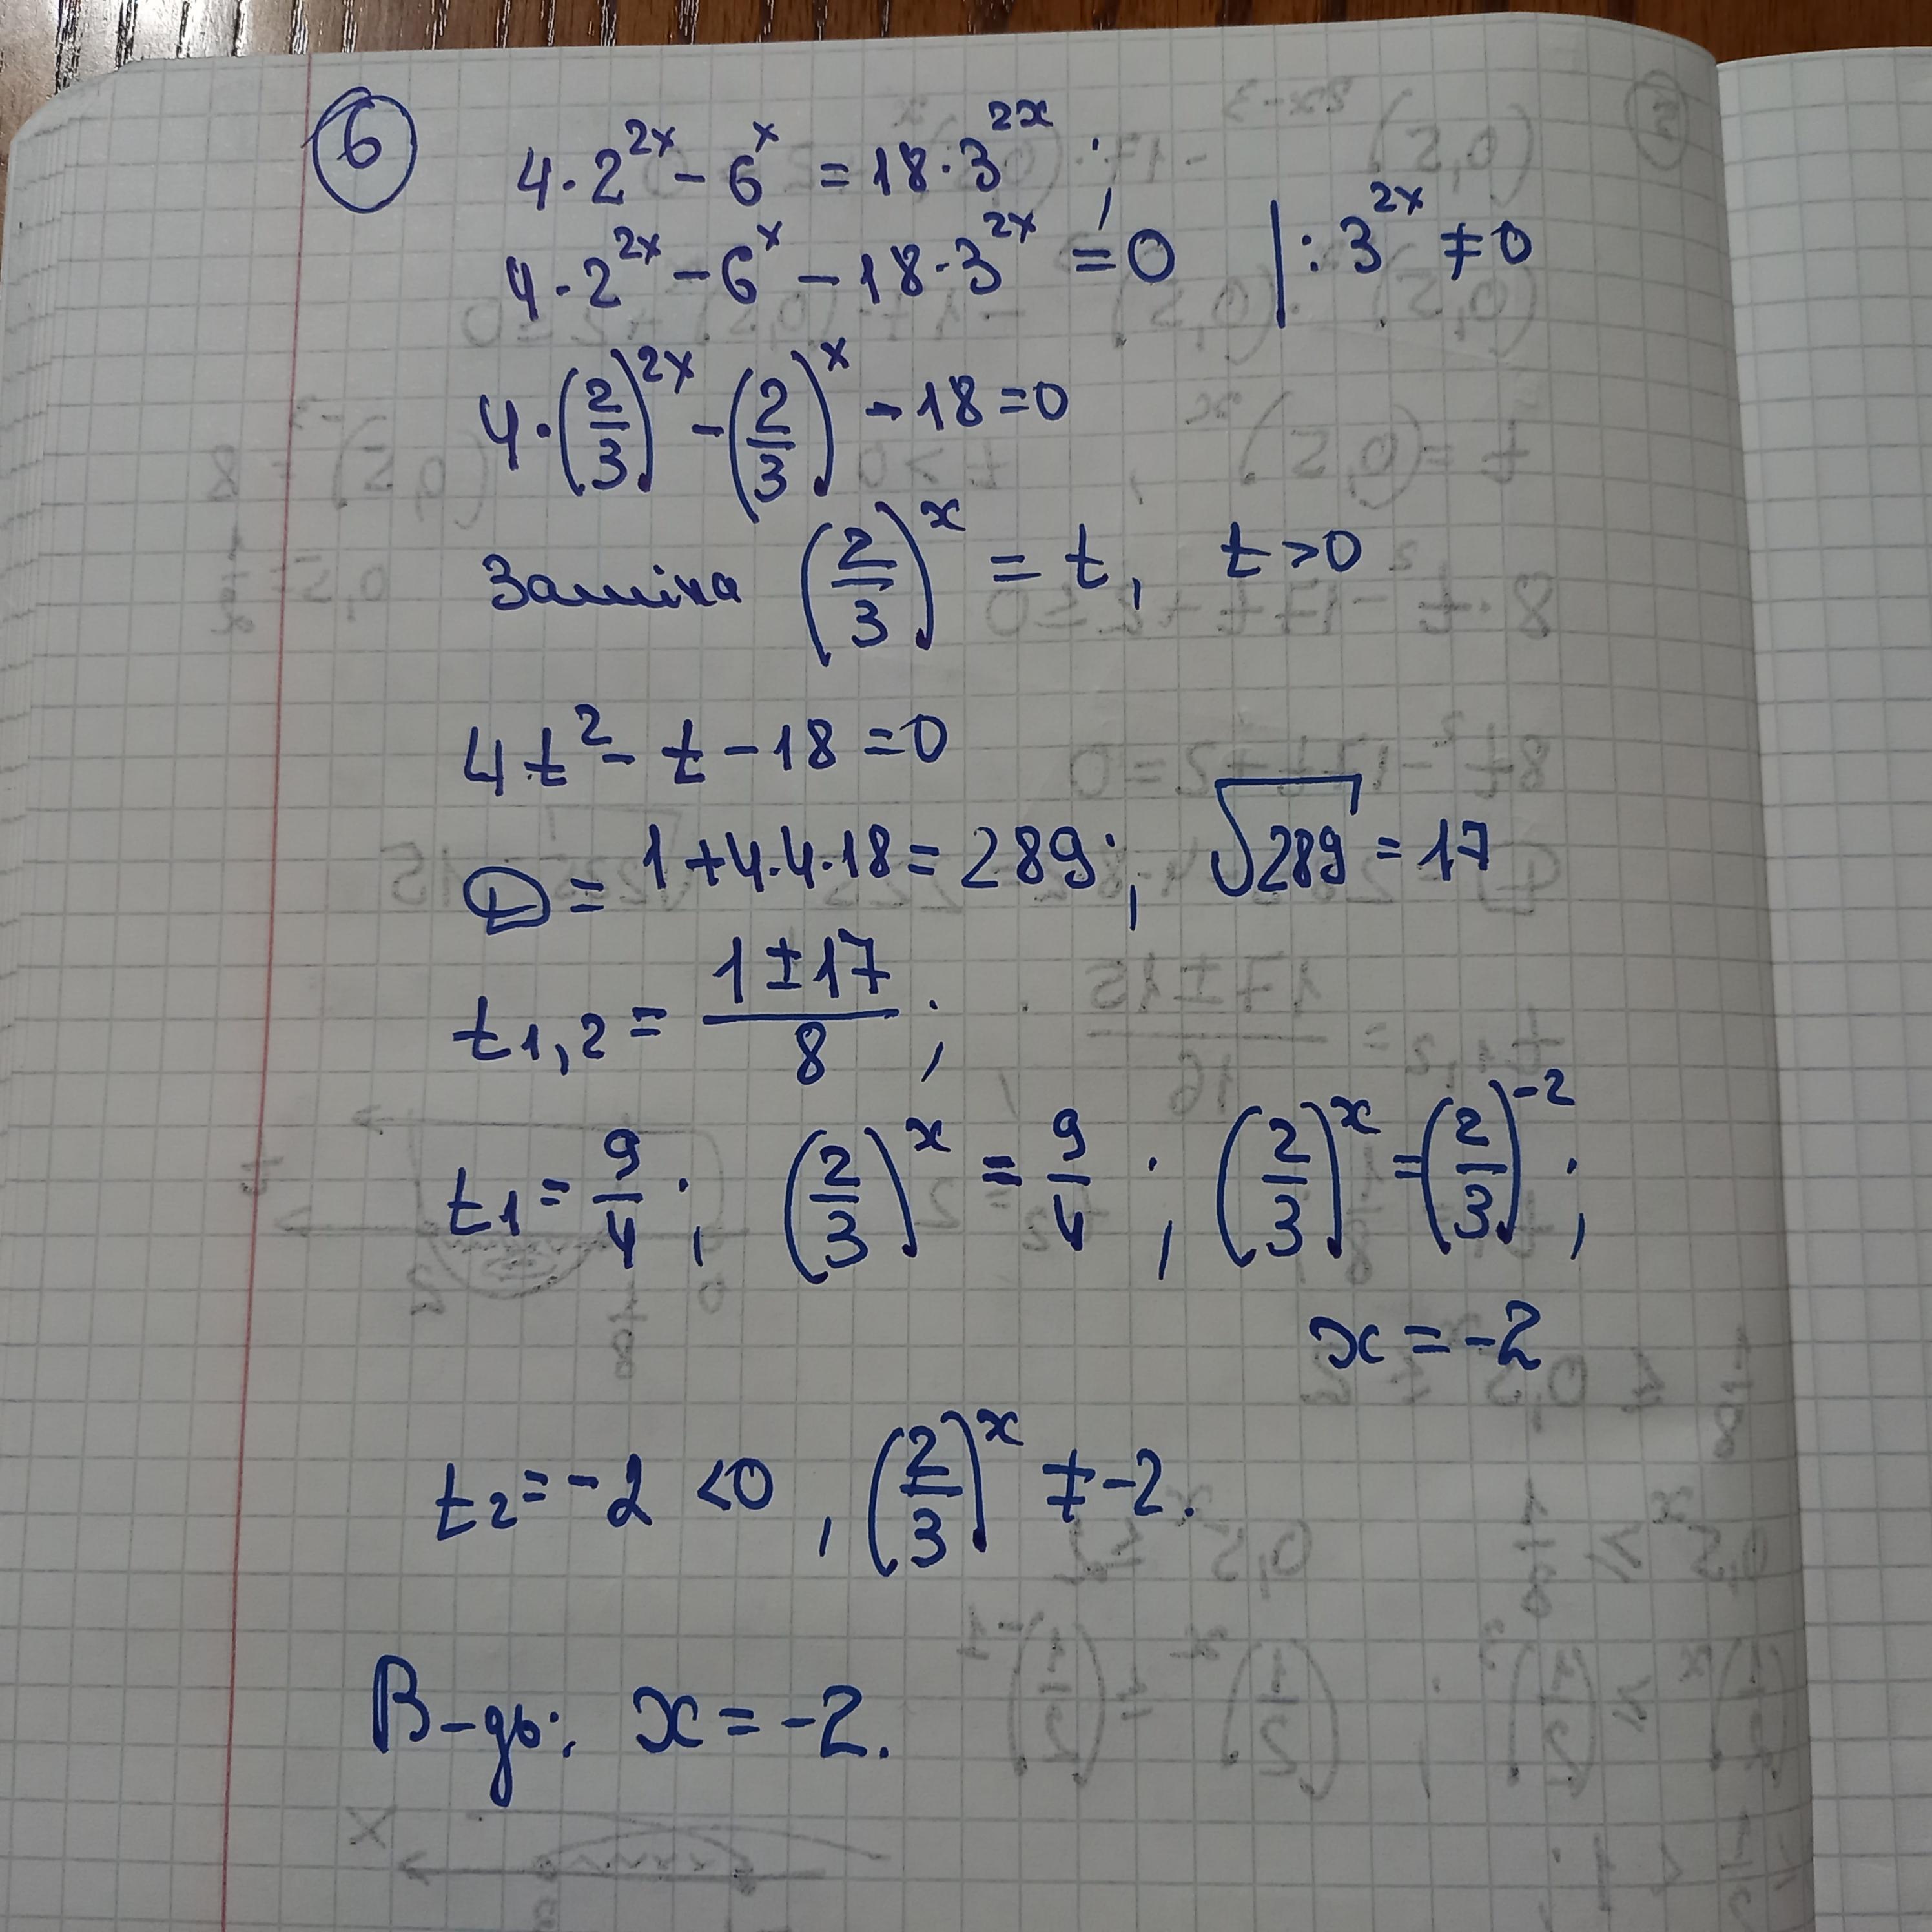 6
4·2^{2x} - 6^x = 18·3^{2x} ;
4·2^{2x} - 6^x - 18·3^{2x} = 0 | : 3^{2x} ≠ 0
4·(2/3)^{2x} - (2/3)^x - 18 = 0
Заміна (2/3)^x = t, t > 0
4t² - t - 18 = 0
D = 1 + 4·4·18 = 289; √289 = 17
t_{1,2} = (1 ± 17)/8 ;
t_1 = 9/4 ; (2/3)^x = 9/4 ; (2/3)^x = (2/3)^{-2} ;
x = -2
t_2 = -2 < 0, (2/3)^x ≠ -2.
В-дь: x = -2.